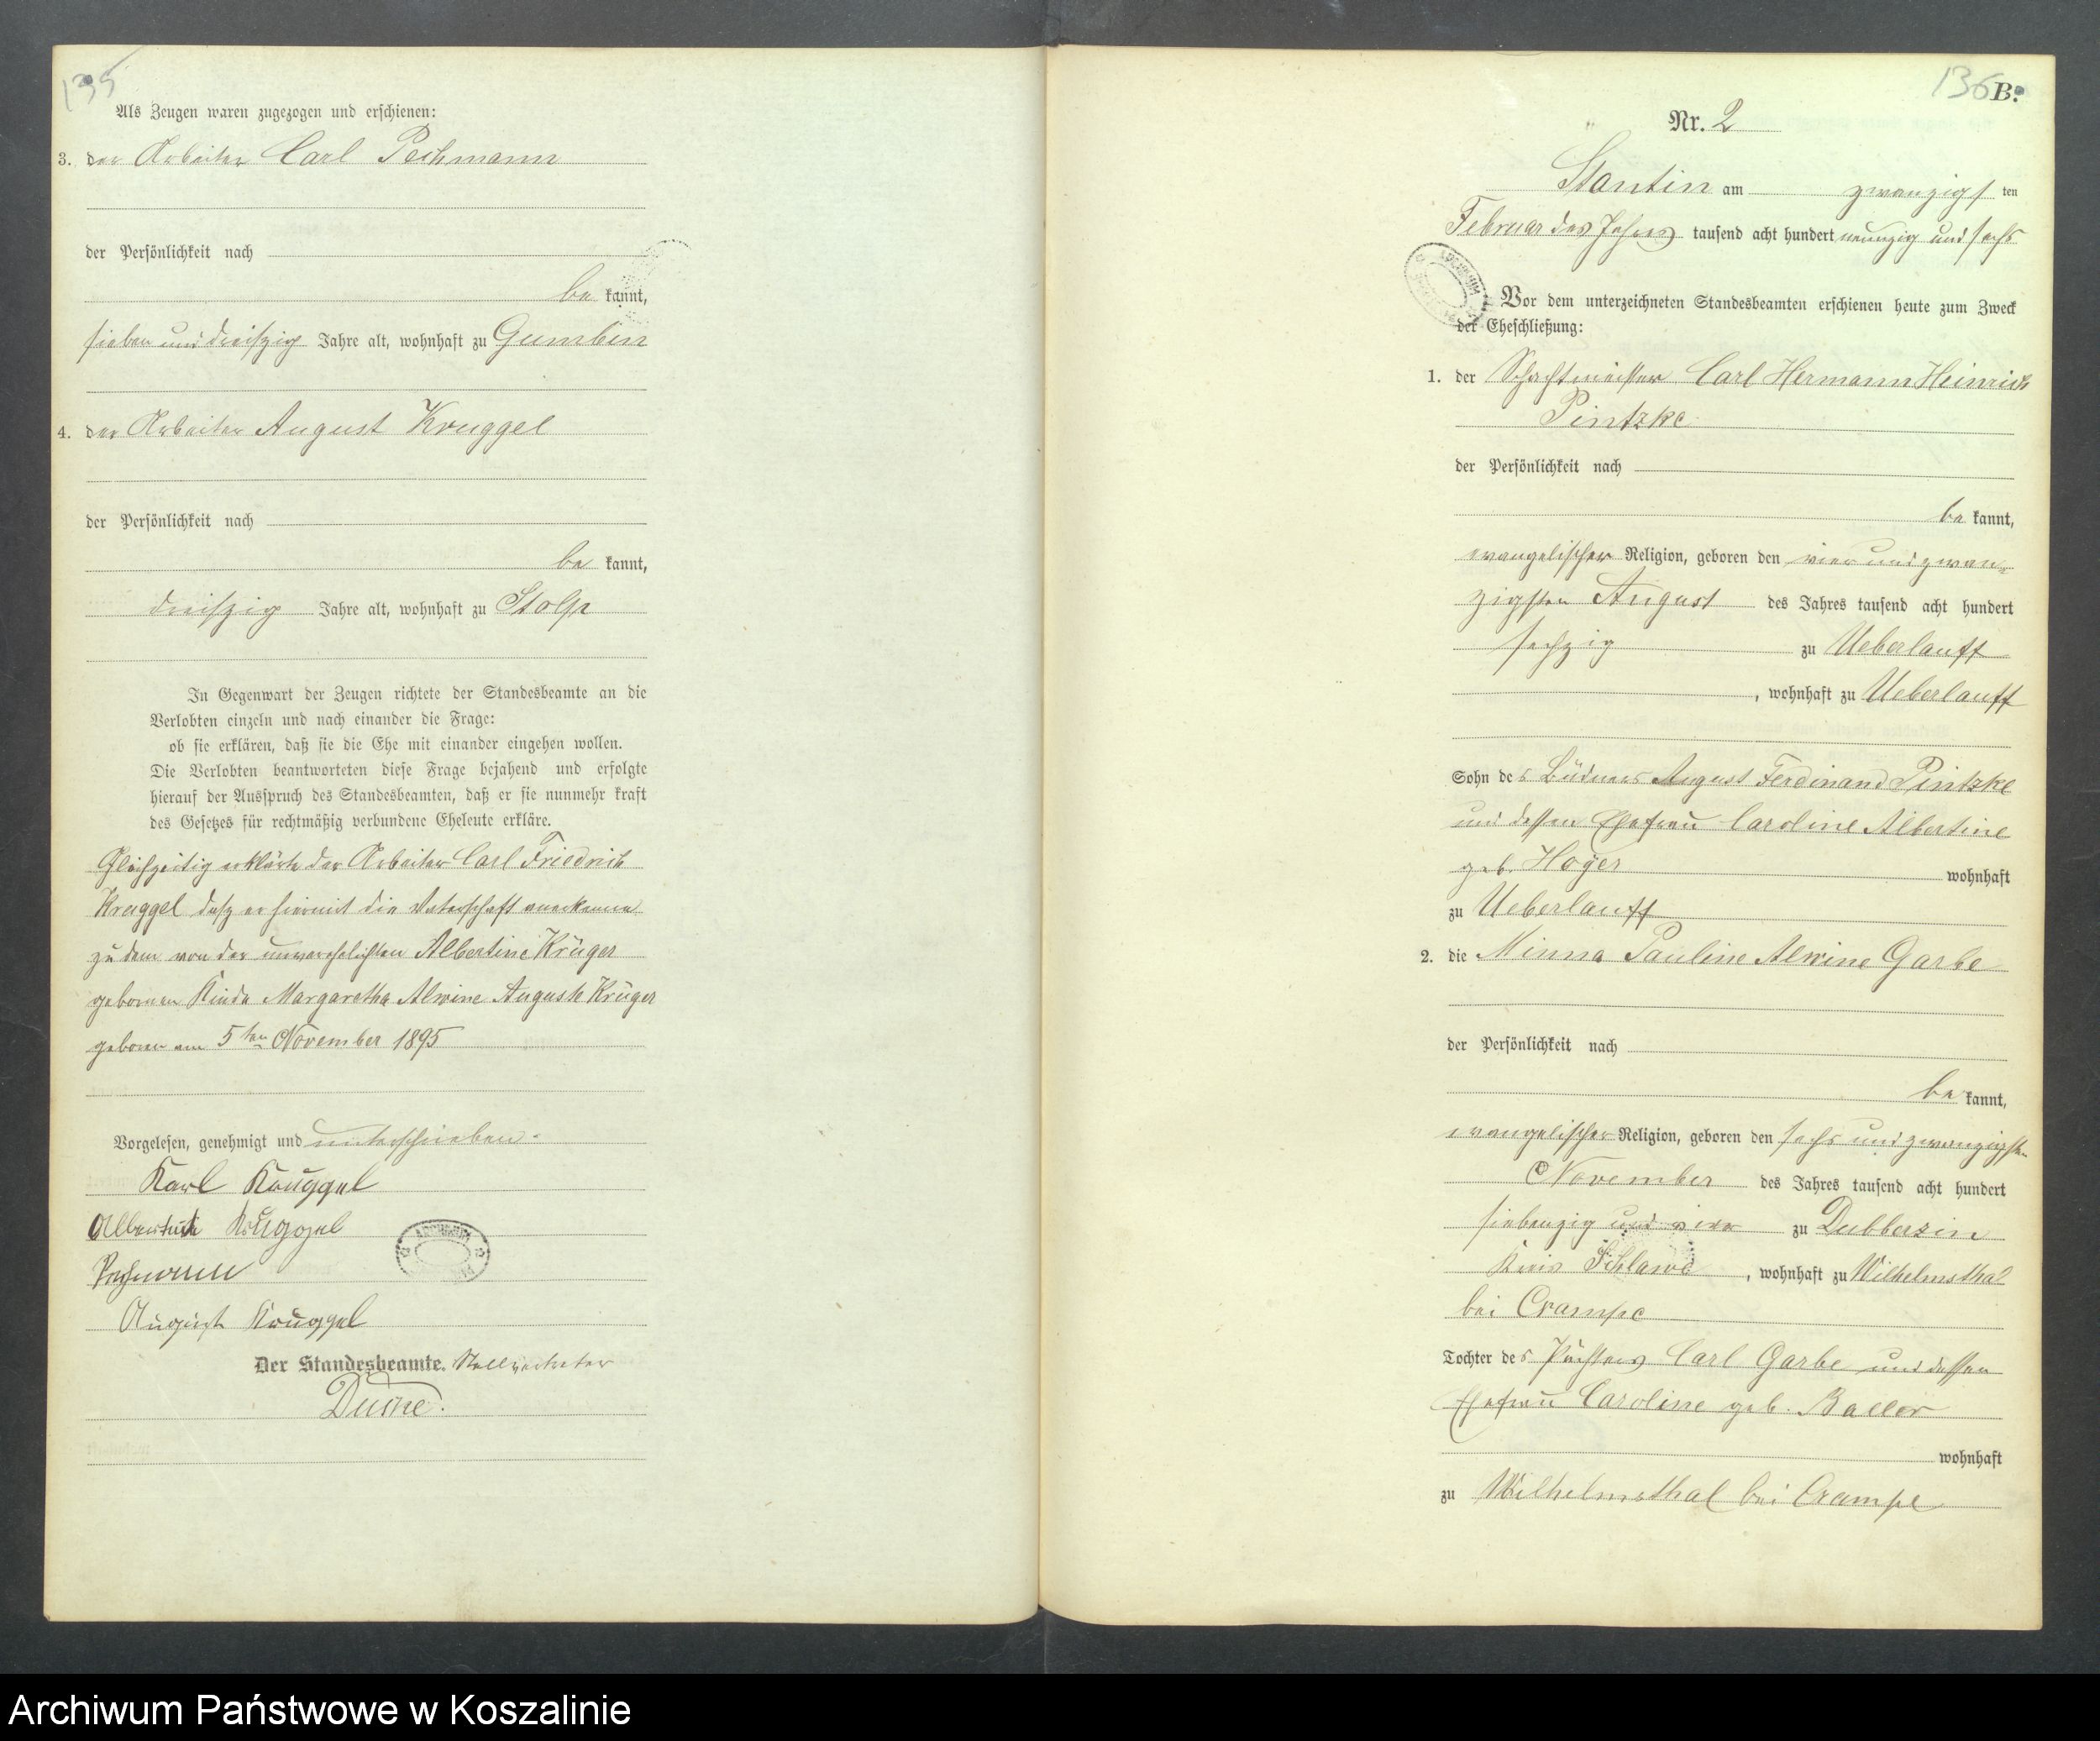 135
Als Zeugen waren zugezogen und erschienen:
3. der Arbeiter Carl Pechmann
der Persönlichkeit nach
be kannt,
sieben und dreißzig Jahre alt, wohnhaft zu Gumbin
4. der Arbeiter August Kruggel
der Persönlichkeit nach
be kannt,
dreißzig Jahre alt, wohnhaft zu Stolp
In Gegenwart der Zeugen richtete der Standesbeamte an die
Verlobten einzeln und nach einander die Frage:
ob sie erklären, daß sie die Ehe mit einander eingehen wollen.
Die Verlobten beantworteten diese Frage bejahend und erfolgte
hierauf der Ausspruch des Standesbeamten, daß er sie nunmehr kraft
des Gesetzes für rechtmäßig verbundene Eheleute erkläre.
Gleichzeitig erklärte der Arbeiter Carl Friedrich
Kruggel daß er hiermit die Vaterschaft anerkenne
zu dem von der unverehelichten Albertine Krüger
gebornen Kinde Margaretha Alwine Auguste Krüger
geboren am 5ten November 1895
Vorgelesen, genehmigt und unterschrieben.
Karl Kruggel
Albertine Kruggel
Pechmann
August Kruggel
Der Standesbeamte. Stellvertreter
136
B.
Nr. 2
Stantin am zwanzigs ten
Februar des Jahres tausend acht hundert neunzig und sechs
Vor dem unterzeichneten Standesbeamten erschienen heute zum Zweck
der Eheschließung:
1. der Schachtmeister Carl Hermann Heinrich
Pintzke
der Persönlichkeit nach
be kannt,
evangelischer Religion, geboren den vier und zwan-
zigsten August des Jahres tausend acht hundert
sechzig zu Ueberlauff
, wohnhaft zu Ueberlauff
Sohn des Büdners August Ferdinand Pintzke
und dessen Ehefrau Caroline Albertine
geb. Hoyer wohnhaft
zu Ueberlauff
2. die Minna Pauline Alwine Garbe
der Persönlichkeit nach
be kannt,
evangelischer Religion, geboren den sechs und zwanzigsten
November des Jahres tausend acht hundert
siebenzig und vier zu Dubberzin
Kreis Schlawe, wohnhaft zu Wilhelmsthal
bei Crampe
Tochter des Pächters Carl Garbe und dessen
Ehefrau Caroline geb. Baller
wohnhaft
zu Wilhelmsthal bei Crampe
Archiwum Państwowe w Koszalinie